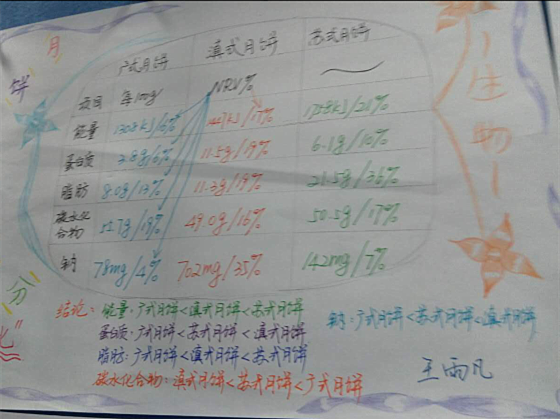 月
饼
分
化"
一生物一
广式月饼 滇式月饼 苏式月饼
项目 每100g NRV%
能量 1308kJ/16% 1447kJ/17% 1758kJ/21%
蛋白质 3.8g/6% 11.5g/19% 6.1g/10%
脂肪 8.0g/13% 11.3g/19% 21.5g/36%
碳水化合物 54.7g/18% 49.0g/16% 50.5g/17%
钠 78mg/4% 702mg/35% 142mg/7%
结论: 能量:广式月饼<滇式月饼<苏式月饼
蛋白质:广式月饼<苏式月饼<滇式月饼
脂肪:广式月饼<滇式月饼<苏式月饼
碳水化合物:滇式月饼<苏式月饼<广式月饼
钠:广式月饼<苏式月饼<滇式月饼
王雨凡